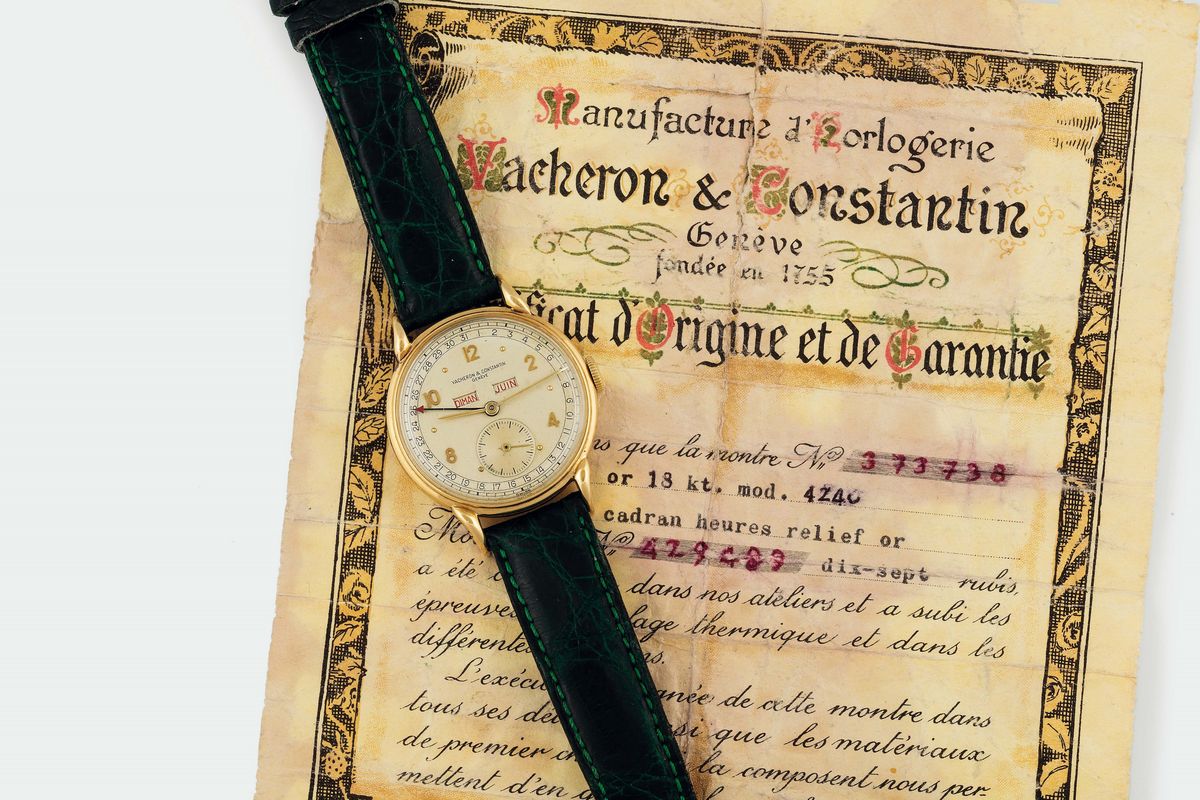 Manufacture d'Horlogerie
Vacheron & Constantin
Genève
fondée en 1755
ficat d'Origine et de Garantie
VACHERON & CONSTANTIN
GENÈVE
DIMAN JUIN
12
2
4
8
10
ns que la montre No 373738
or 18 kt. mod. 4240
cadran heures relief or
No 429489 dix-sept rubis,
a été dans nos ateliers et a subi les
épreuves lage thermique et dans les
différentes ns.
L'exécu gnée de cette montre dans
tous ses dé si que les matériaux
de premier ch la composent nous per-
mettent d'en